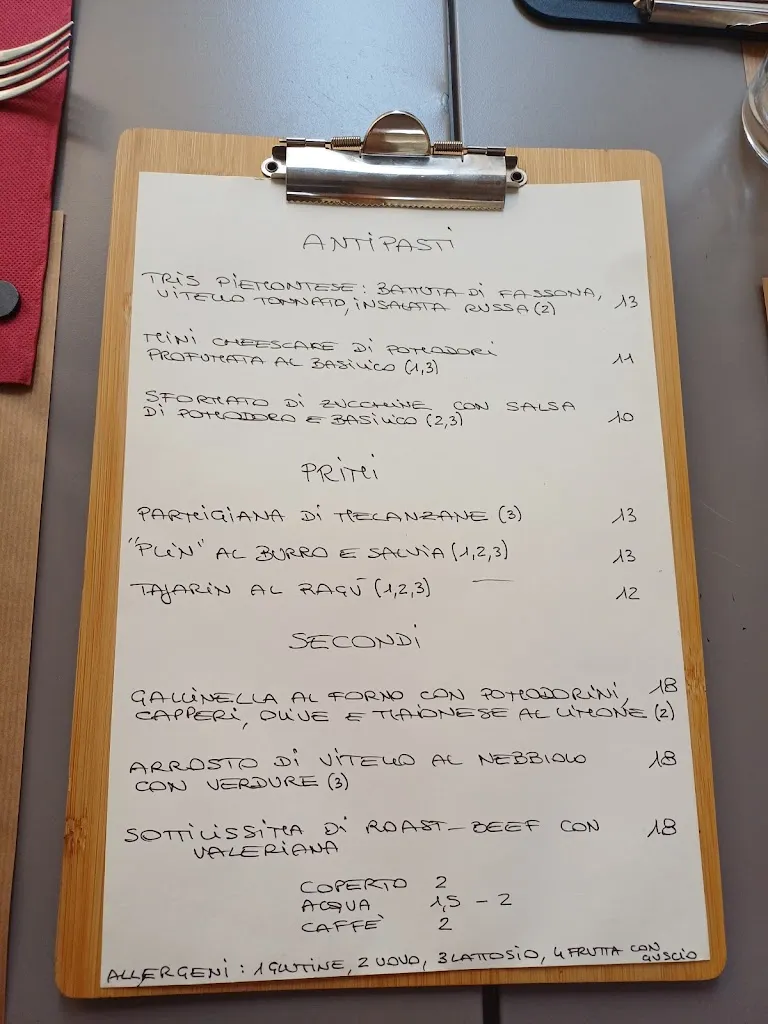 ANTIPASTI
TRIS PIEMONTESE: BATTUTA DI FASSONA, 13
VITELLO TONNATO, INSALATA RUSSA (2)
MINI CHEESCAKE DI POMODORI 11
PROFUMATA AL BASILICO (1,3)
SFORMATO DI ZUCCHINE CON SALSA
DI POMODORO E BASILICO (2,3) 10
PRIMI
PARMIGIANA DI MELANZANE (3) 13
"PLIN" AL BURRO E SALVIA (1,2,3) 13
TAJARIN AL RAGÚ (1,2,3) 12
SECONDI
GALLINELLA AL FORNO CON POMODORINI, 18
CAPPERI, OLIVE E MAIONESE AL LIMONE (2)
ARROSTO DI VITELLO AL NEBBIOLO 18
CON VERDURE (3)
SOTTILISSIMA DI ROAST-BEEF CON 18
VALERIANA
COPERTO 2
ACQUA 1,5 - 2
CAFFÈ 2
ALLERGENI: 1 GLUTINE, 2 UOVO, 3 LATTOSIO, 4 FRUTTA CON
GUSCIO